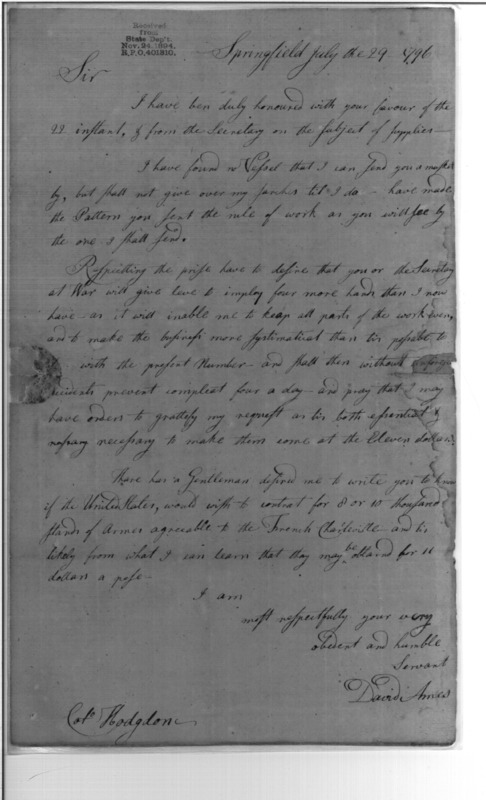 Received
from
State Dep't.
Nov. 24, 1894.
R.P.O. 401810.
Springfield July the 29 1796
Sir
I have ben duly honoured with your favour of the
22 instant, & from the Secretary on the subject of supplies—
I have found no Vessel that I can send you a musket
by, but shall not give over my sarches till I do — have made
the Pattern you sent the rule of work as you will see by
the one I shall send.
Respitting the prise have to desire that you or the Secretary
at War will give leve to imploy four more hands than I now
have — as it will inable me to keep all parts of the work even,
and to make the business more systimatical than tis posible to
with the present Number — and shall then without
accidents prevent compleat four a day — and pray that I may
have orders to grattefy my request as tis both essential &
nessary necessary to make them come at the Eleven dollars.
Thare has a Gentleman desired me to write you to know
if the United States, would wish to contrat for 8 or 10 thousand
stands of Armes agreeable to the French Charleville and tis
likely from what I can learn that they may be obtaind for 11
dollars a pese —
I am
most respectfully your very
obedent and humble
Servant
David Ames
Colo. Hodgdon